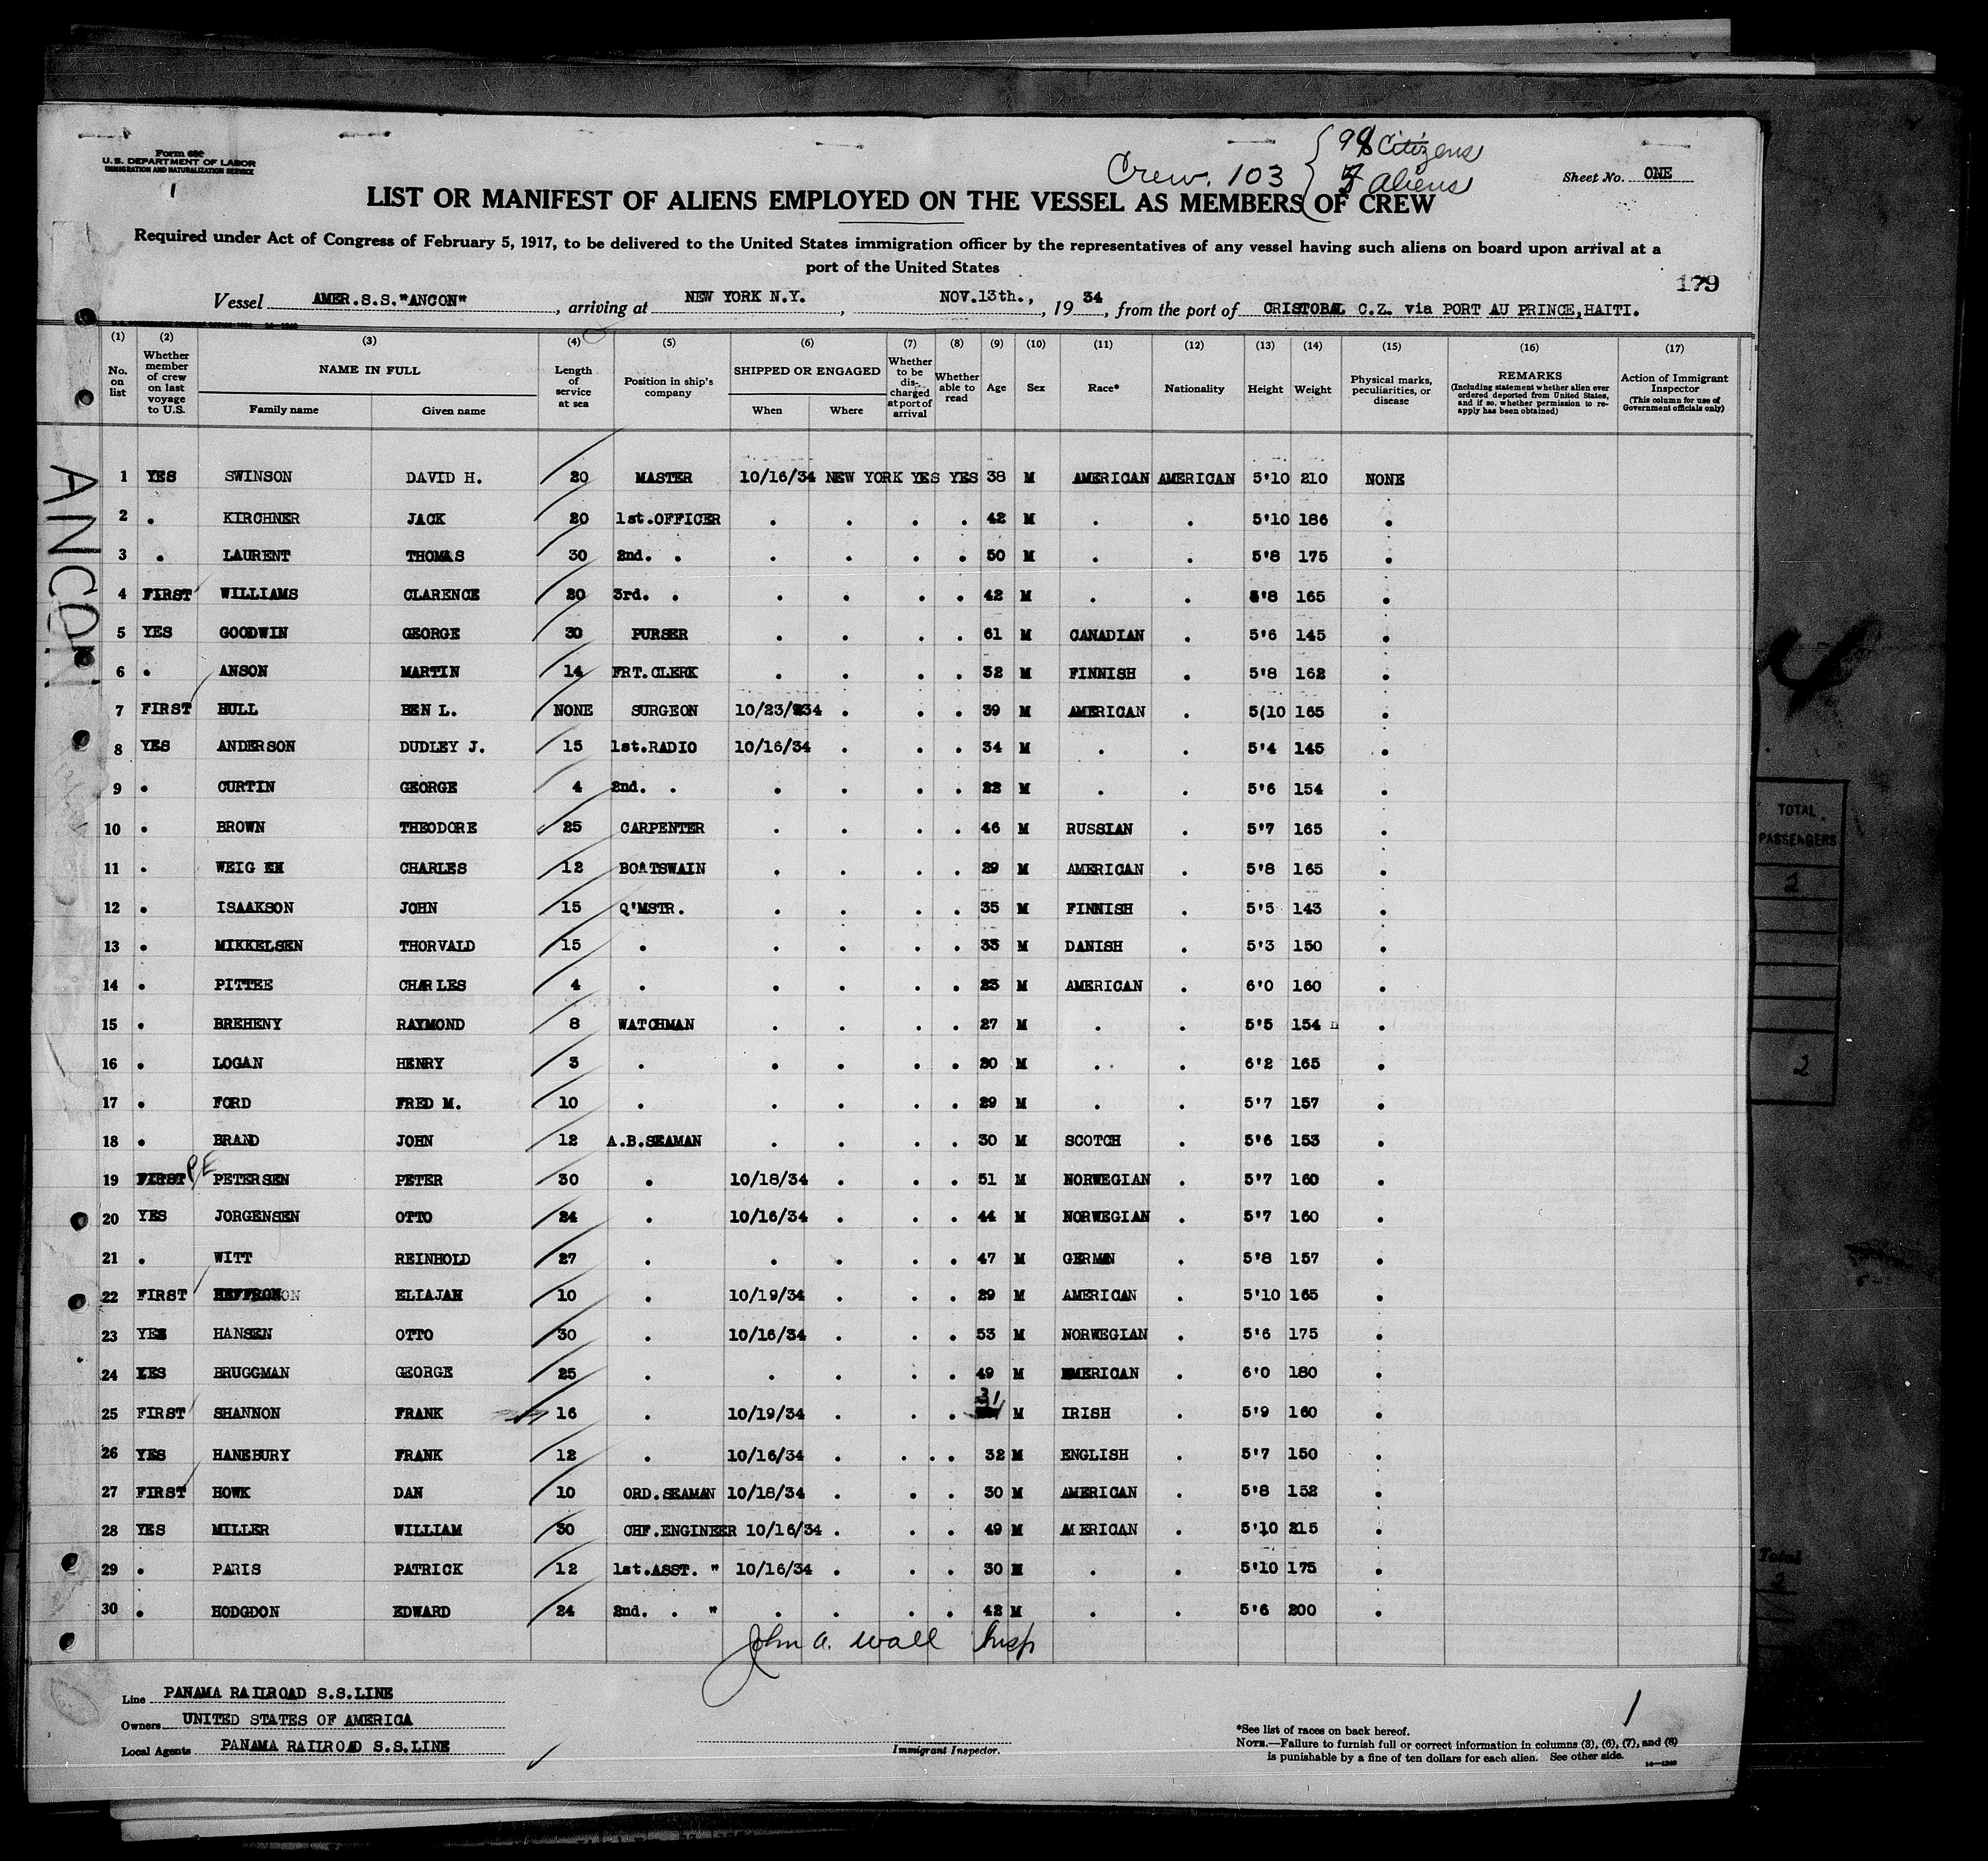 Form 680
U. S. DEPARTMENT OF LABOR
IMMIGRATION AND NATURALIZATION SERVICE
1
Crew. 103 { 98 Citizens
5 Aliens
Sheet No. ONE
LIST OR MANIFEST OF ALIENS EMPLOYED ON THE VESSEL AS MEMBERS OF CREW
Required under Act of Congress of February 5, 1917, to be delivered to the United States immigration officer by the representatives of any vessel having such aliens on board upon arrival at a
port of the United States
179
Vessel AMER.S.S."ANCON", arriving at NEW YORK N.Y., NOV.13th., 1934, from the port of CRISTOBAL C.Z. via PORT AU PRINCE,HAITI.
(1) (2) (3) (4) (5) (6) (7) (8) (9) (10) (11) (12) (13) (14) (15) (16) (17)
No. on list Whether member of crew on last voyage to U.S. NAME IN FULL Family name Given name Length of service at sea Position in ship's company SHIPPED OR ENGAGED When Where Whether to be discharged at port of arrival Whether able to read Age Sex Race* Nationality Height Weight Physical marks, peculiarities, or disease REMARKS (Including statement whether alien ever ordered deported from United States, and if so, whether permission to reapply has been obtained) Action of Immigrant Inspector (This column for use of Government officials only)
ANCON
1 YES SWINSON DAVID H. 20 MASTER 10/16/34 NEW YORK YES YES 38 M AMERICAN AMERICAN 5'10 210 NONE
2 . KIRCHNER JACK 20 1st.OFFICER . . . . 42 M . . 5'10 186 .
3 . LAURENT THOMAS 30 2nd. . . . . . 50 M . . 5'8 175 .
4 FIRST WILLIAMS CLARENCE 20 3rd. . . . . . 42 M . . 5'8 165 .
5 YES GOODWIN GEORGE 30 PURSER . . . . 61 M CANADIAN . 5'6 145 .
6 . ANSON MARTIN 14 FRT.CLERK . . . . 32 M FINNISH . 5'8 162 .
7 FIRST HULL BEN L. NONE SURGEON 10/23/234 . . . 39 M AMERICAN . 5(10 165 .
8 YES ANDERSON DUDLEY J. 15 1st.RADIO 10/16/34 . . . 34 M . . 5'4 145 .
9 . CURTIN GEORGE 4 2nd. . . . . . 22 M . . 5'6 154 .
10 . BROWN THEODORE 25 CARPENTER . . . . 46 M RUSSIAN . 5'7 165 .
11 . WEIG EN CHARLES 12 BOATSWAIN . . . . 29 M AMERICAN . 5'8 165 .
12 . ISAAKSON JOHN 15 Q'MSTR. . . . . 35 M FINNISH . 5'5 143 .
13 . MIKKELSEN THORVALD 15 . . . . . 33 M DANISH . 5'3 150 .
14 . PITTEE CHARLES 4 . . . . . 23 M AMERICAN . 6'0 160 .
15 . BREHENY RAYMOND 8 WATCHMAN . . . . 27 M . . 5'5 154 .
16 . LOGAN HENRY 3 . . . . . 20 M . . 6'2 165 .
17 . FORD FRED M. 10 . . . . . 29 M . . 5'7 157 .
18 . BRAND JOHN 12 A.B.SEAMAN . . . . 30 M SCOTCH . 5'6 153 .
19 FIRST PE PETERSEN PETER 30 . 10/18/34 . . . 51 M NORWEGIAN . 5'7 160 .
20 YES JORGENSEN OTTO 24 . 10/16/34 . . . 44 M NORWEGIAN . 5'7 160 .
21 . WITT REINHOLD 27 . . . . . 47 M GERMAN . 5'8 157 .
22 FIRST HEFFRON ELIAJAH 10 . 10/19/34 . . . 29 M AMERICAN . 5'10 165 .
23 YES HANSEN OTTO 30 . 10/16/34 . . . 53 M NORWEGIAN . 5'6 175 .
24 YES BRUGGMAN GEORGE 25 . . . . . 49 M AMERICAN . 6'0 180 .
25 FIRST SHANNON FRANK 16 . 10/19/34 . . . 31 M IRISH . 5'9 160 .
26 YES HANEBURY FRANK 12 . 10/16/34 . . . . 32 M ENGLISH . 5'7 150 .
27 FIRST HOWK DAN 10 ORD.SEAMAN 10/18/34 . . . 30 M AMERICAN . 5'8 152 .
28 YES MILLER WILLIAM 30 CHF.ENGINEER 10/16/34 . . . 49 M AMERICAN . 5'10 215 .
29 . PARIS PATRICK 12 1st.ASST. " 10/16/34 . . . 30 M . . 5'10 175 .
30 . HODGDON EDWARD 24 2nd. . " . . . . 42 M . . 5'6 200 .
John A. Wall Insp
Line PANAMA RAILROAD S.S.LINE
Owners UNITED STATES OF AMERICA
Local Agents PANAMA RAILROAD S.S.LINE
Immigrant Inspector.
1
*See list of races on back hereof.
NOTE.—Failure to furnish full or correct information in columns (3), (6), (7), and (8)
is punishable by a fine of ten dollars for each alien. See other side.
14—1240
TOTAL
PASSENGERS
2
2
Total
2